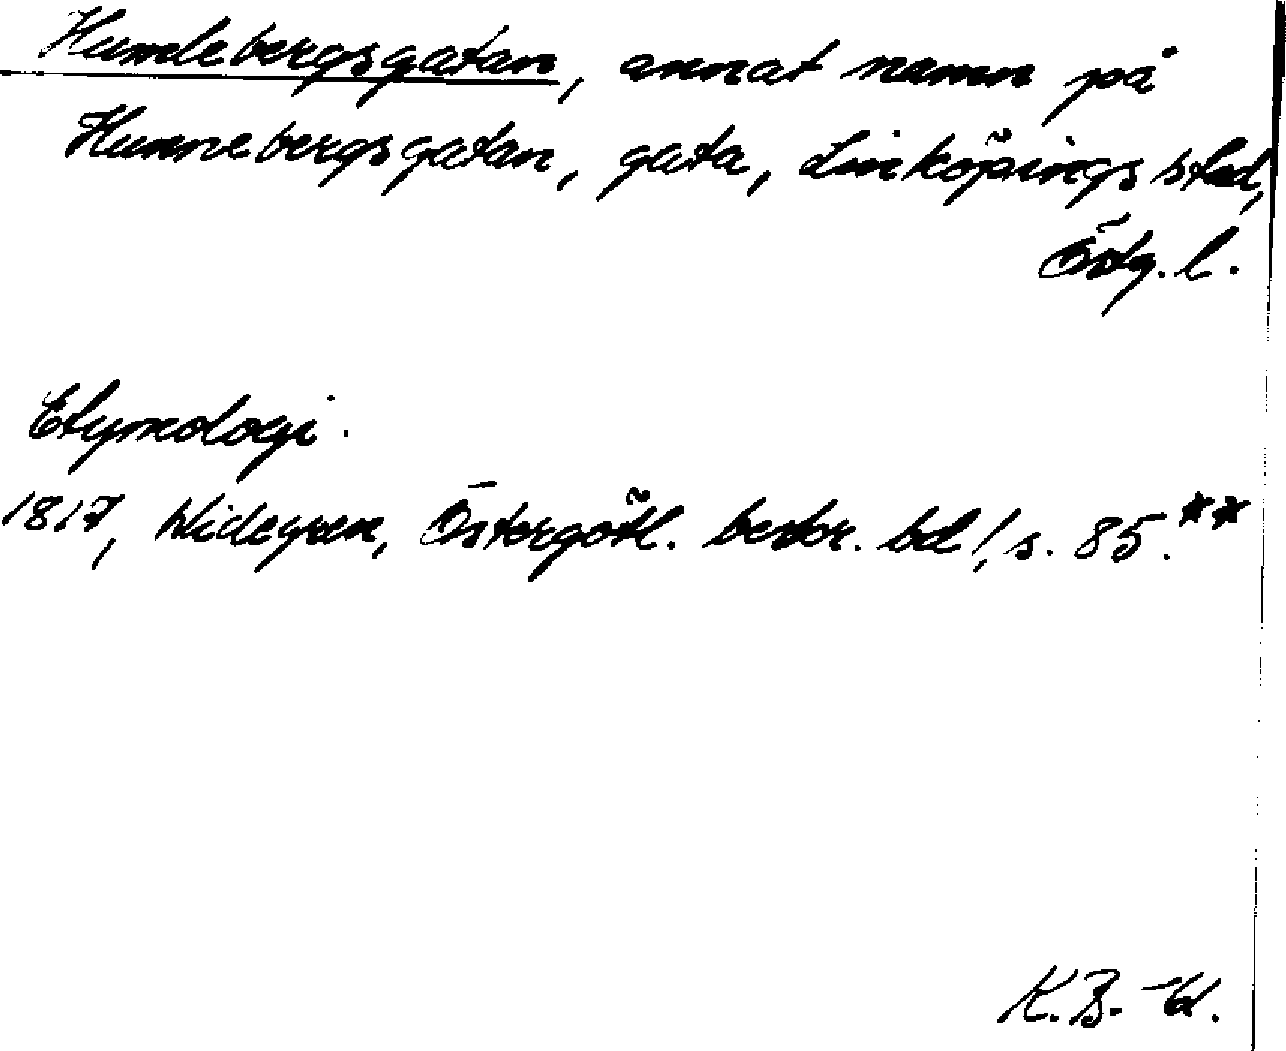 Humlebergsgatan, annat namn på
Hunnebergsgatan, gata, Linköpings stad,
Östg. l.
Etymologi.
1817, Widegren, Östergötl. beskr. bd 1, s. 85.**
K.B.